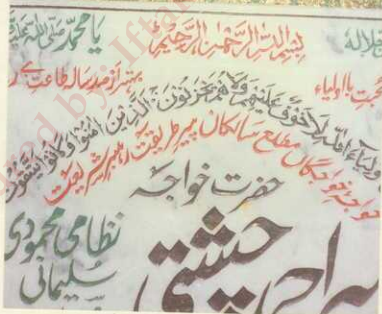 بسم اللہ الرحمٰن الرحیم
یا محمد صلی اللہ علیہ
جلالہ
صحبت با اولیاء
بہتر از صد سالہ طاعت بے ر
ولیاء اللہ لا خوف علیھم ولا ھم یحزنون الذین امنوا وکانوا یتقون
خواجہ خواجگان مطلع سالکان پیر طریقت رہبر شریعت
حضرت خواجہ
چشتی
نظامی محمودی
سلیمانی